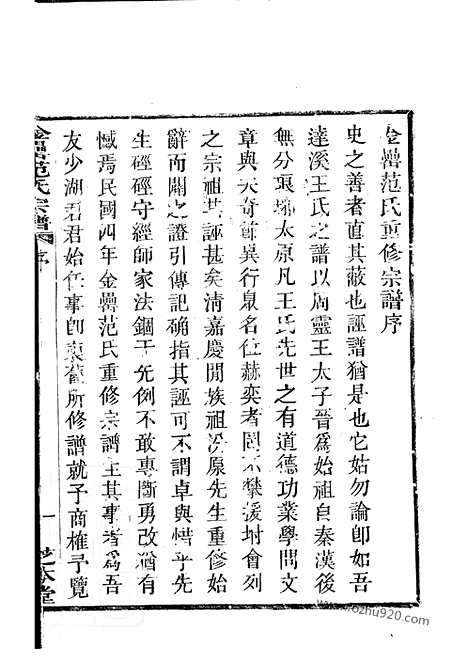 金罍范氏重修宗譜序
史之善者直其蔽也誣譜猶是也它姑勿論即如吾
達溪王氏之譜以周靈王太子晉爲始祖自秦漢後
無分瑯太原凡王氏先世之有道德功業學問文
章與夫奇節異行臯名位赫奕者罔不攀援坿會列
之宗祖其誣甚矣清嘉慶閒族祖原先生重修始
辭而闢之證引傳記确指其誣可不謂卓與惜乎先
生硜硜守經師家法錮于先例不敢專斷勇改猶有
憾焉民國四年金罍范氏重修宗譜主其事者爲吾
友少湖君君始任事即裒舊所修譜就予商榷予覽
金罍范氏宗譜
序
一
堂
www.rozhu920.com